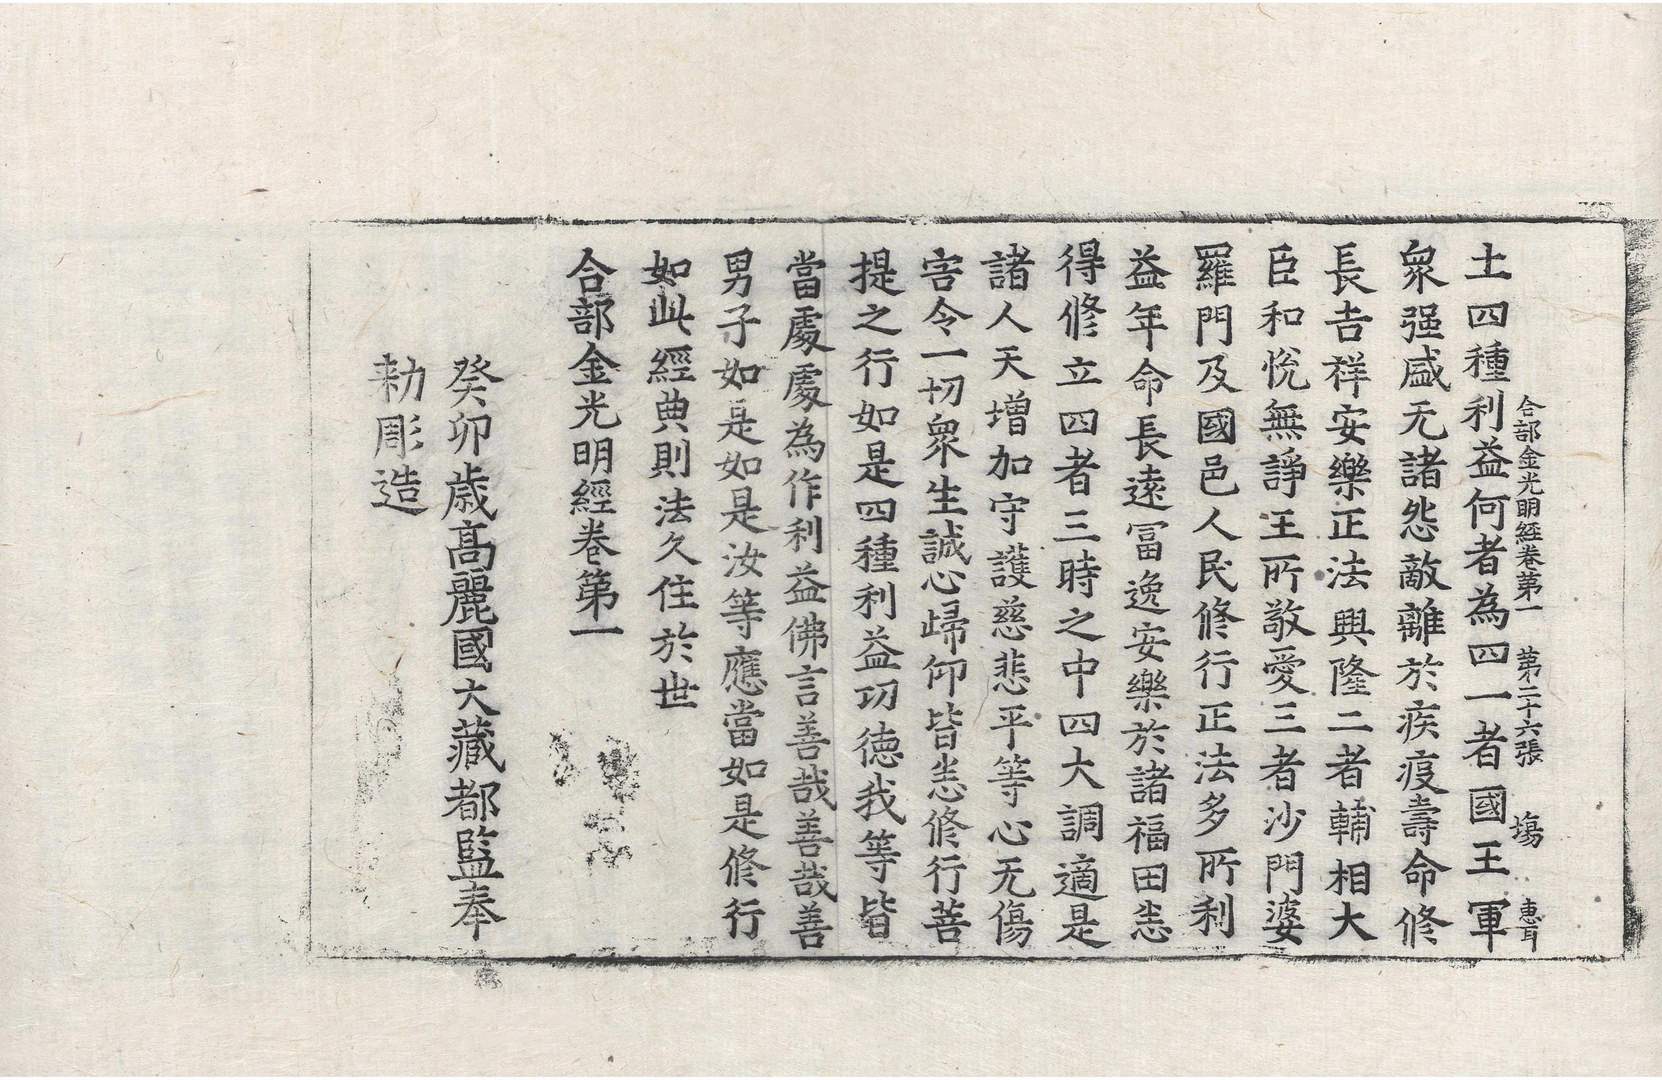 合部金光明經卷第一　第二十六張　塲　惠耳
土四種利益何者為四一者國王軍
衆强盛无諸怨敵離於疾疫壽命修
長吉祥安樂正法興隆二者輔相大
臣和悅無諍王所敬愛三者沙門婆
羅門及國邑人民修行正法多所利
益年命長遠冨逸安樂於諸福田悉
得修立四者三時之中四大調適是
諸人天增加守護慈悲平等心无傷
害令一切衆生誠心歸仰皆悉修行菩
提之行如是四種利益功德我等皆
當處處為作利益佛言善哉善哉善
男子如是如是汝等應當如是修行
如此經典則法久住於世
合部金光明經卷第一
癸卯歲高麗國大藏都監奉
勅彫造